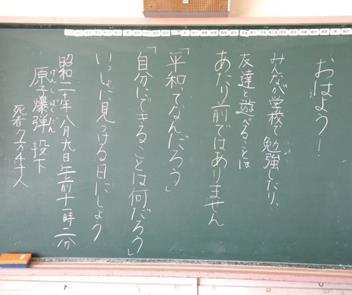 おはよう!
みんなが学校で勉強したり、
友達と遊べることは
あたり前ではありません
「平和ってなんだろう」
「自分にできることは何だろう」
いっしょに見つける日にしよう
昭和二十年八月九日午前十一時二分
げんしばくだん
原子爆弾投下
死者 7万4千人